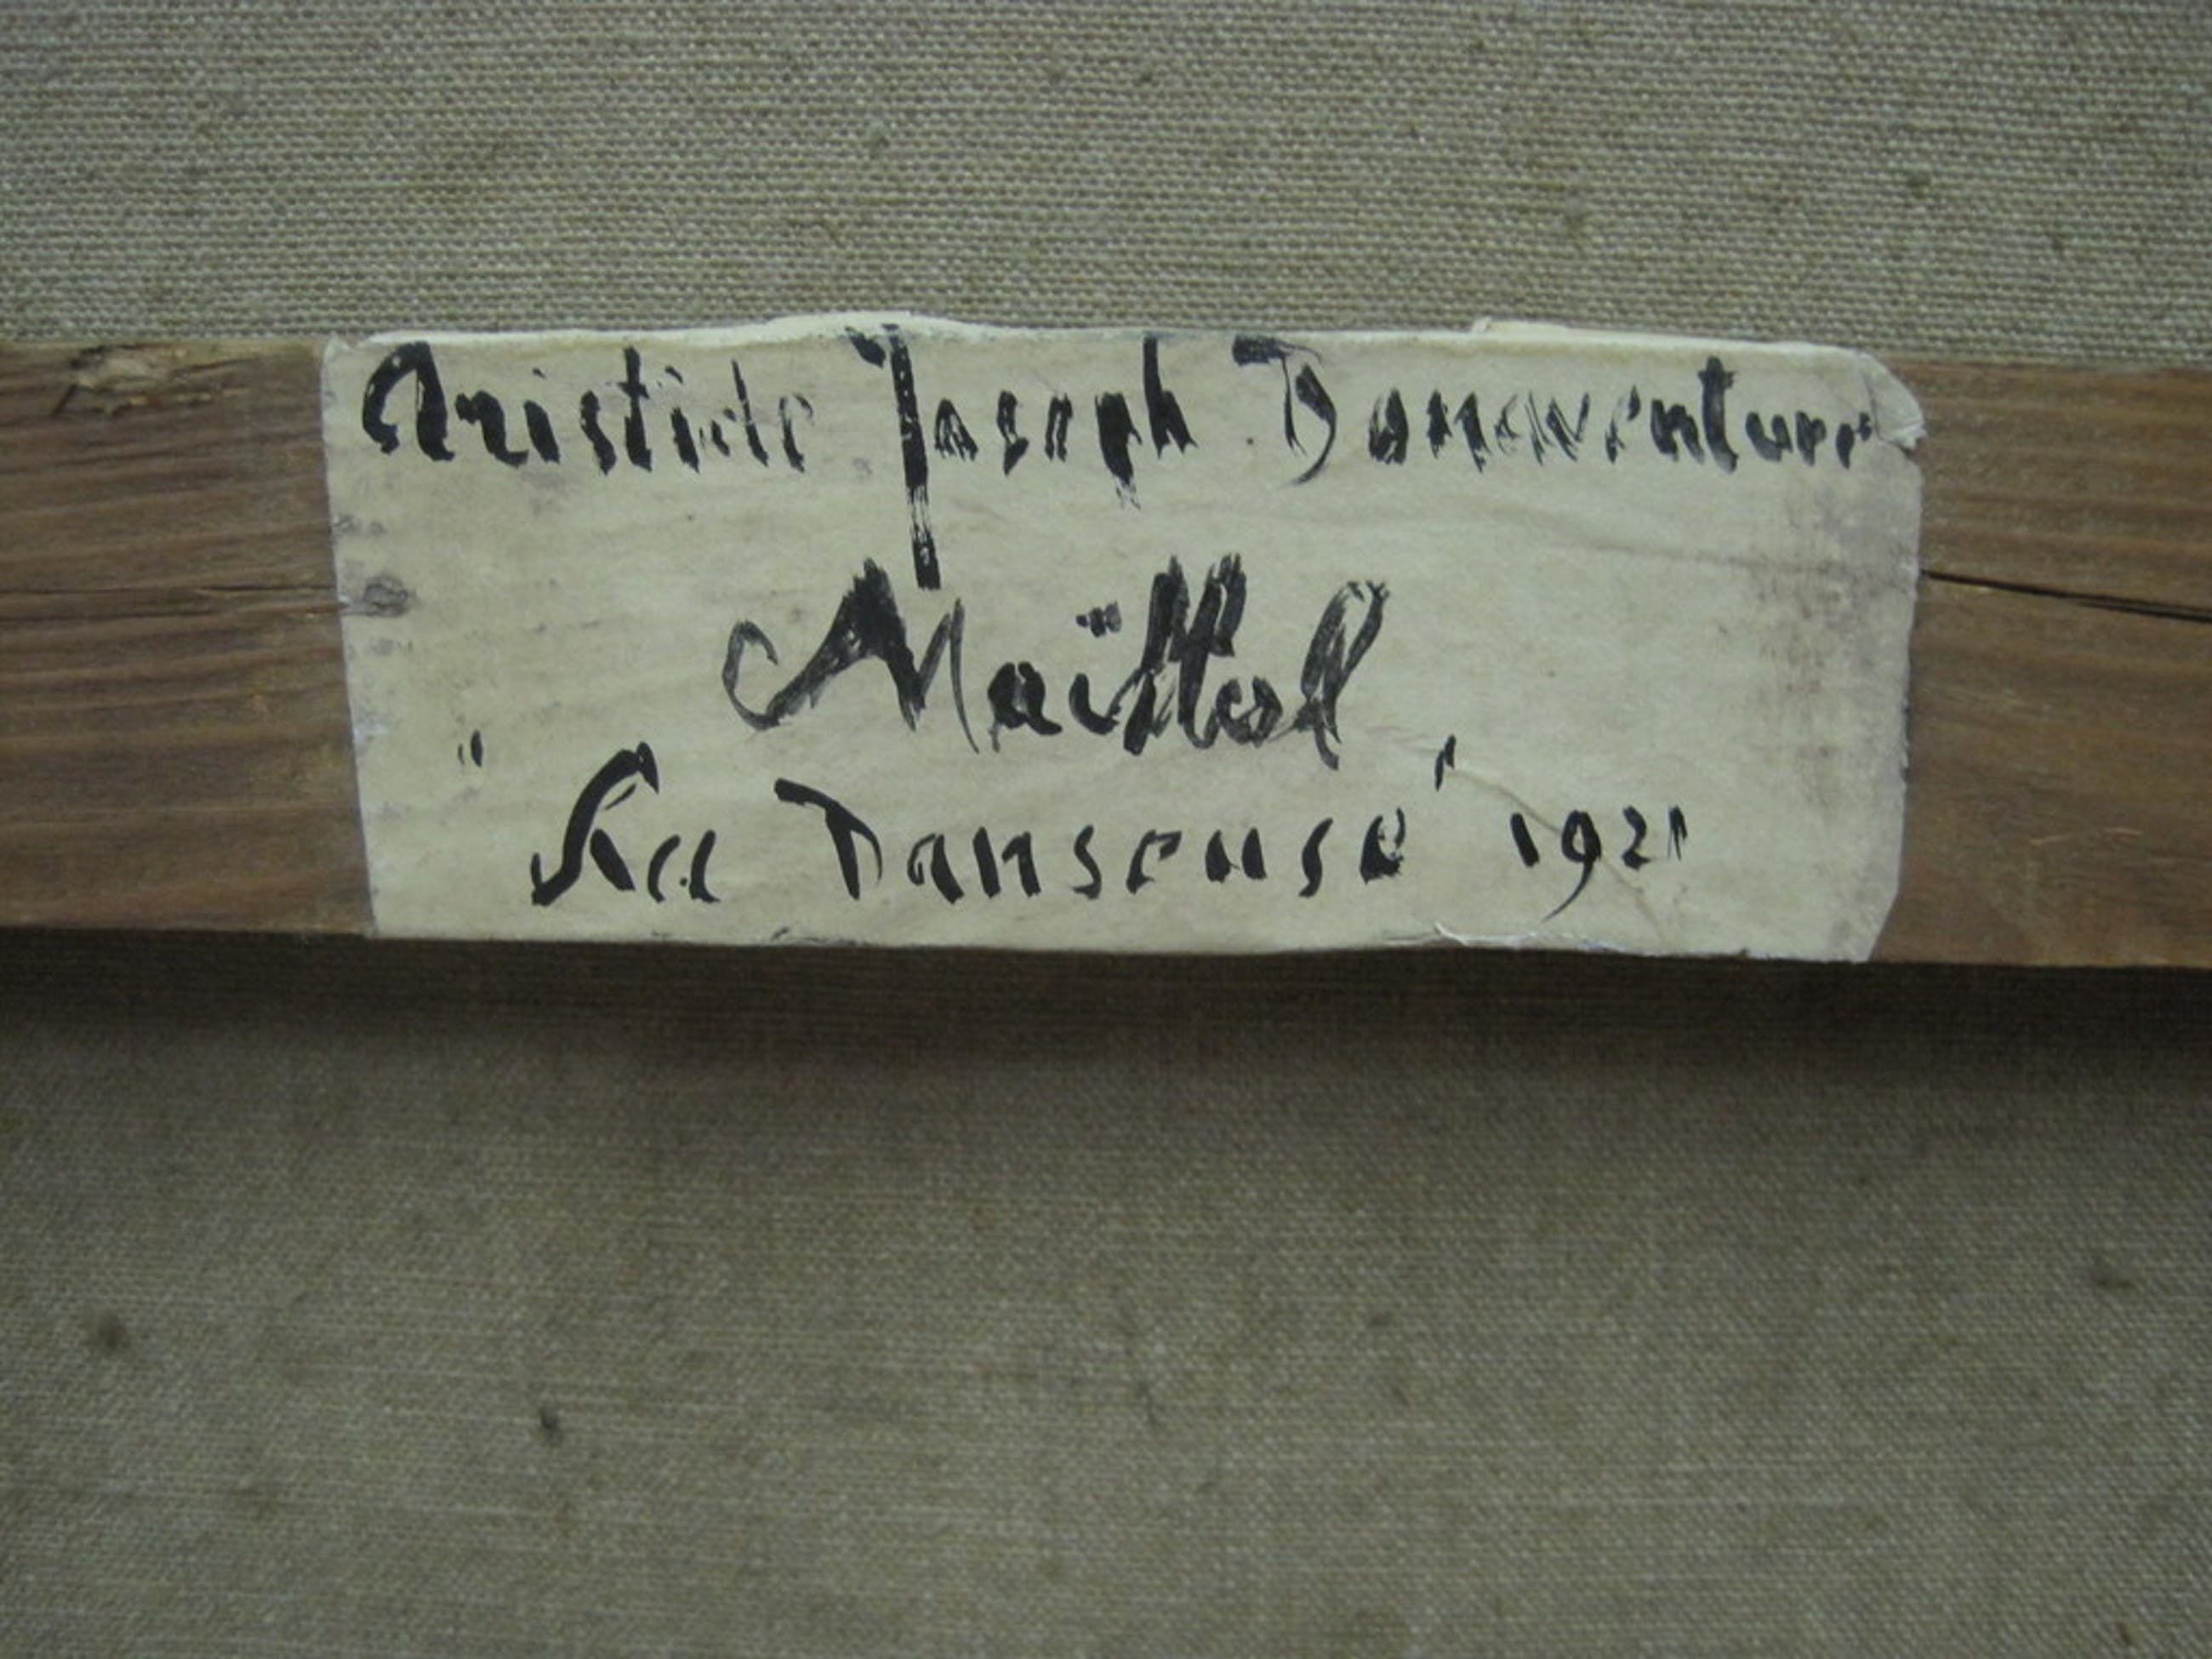 Aristide Joseph Bonaventure
Maïllol
"La Danseuse" 1921